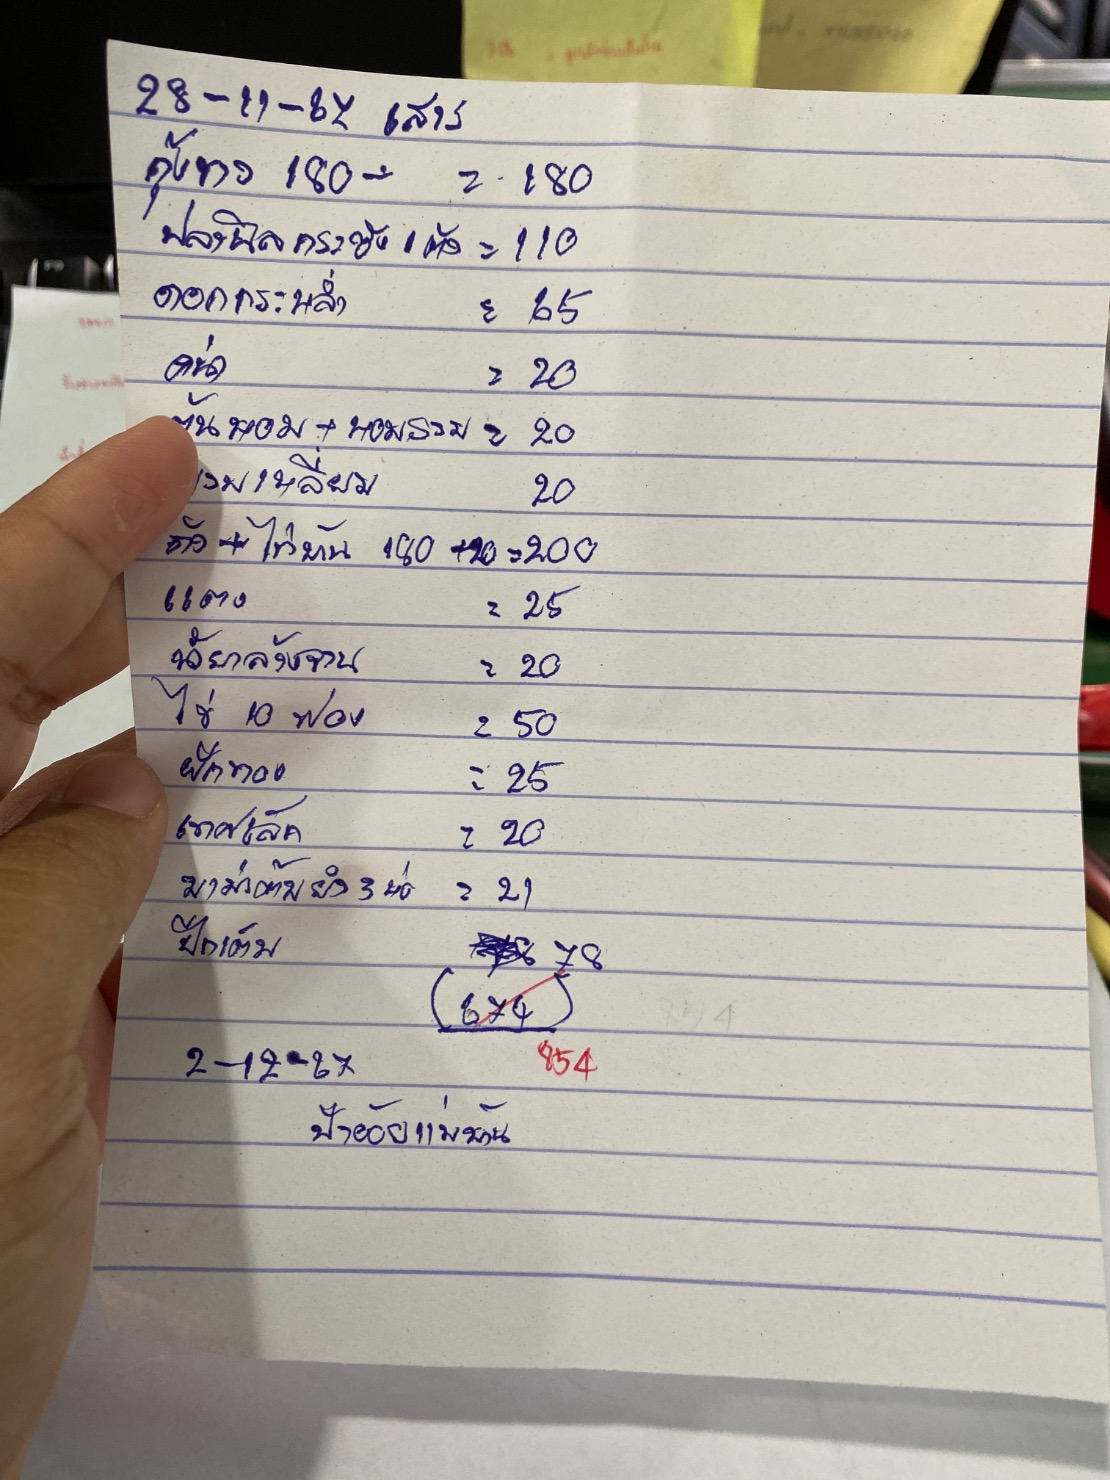 28-11-67 เสาร์
กุ้งขาว 180 - = 180
ปลานิลกระชัง 1 ตัว = 110
ดอกกระหล่ำ = 65
= 20
ต้นหอม + หอมรวม = 20
เหลี่ยม 20
ถั่ว + ไก่บ้าน 180 + 20 = 200
แตง = 25
น้ำยาล้างจาน = 20
ไข่ 10 ฟอง = 50
ฟักทอง = 25
= 20
มาม่าต้มยำ 3 ห่อ = 21
ปีกเต็ม 78
(674)
854
2-12-67
ป้าอ้อยแม่บ้าน